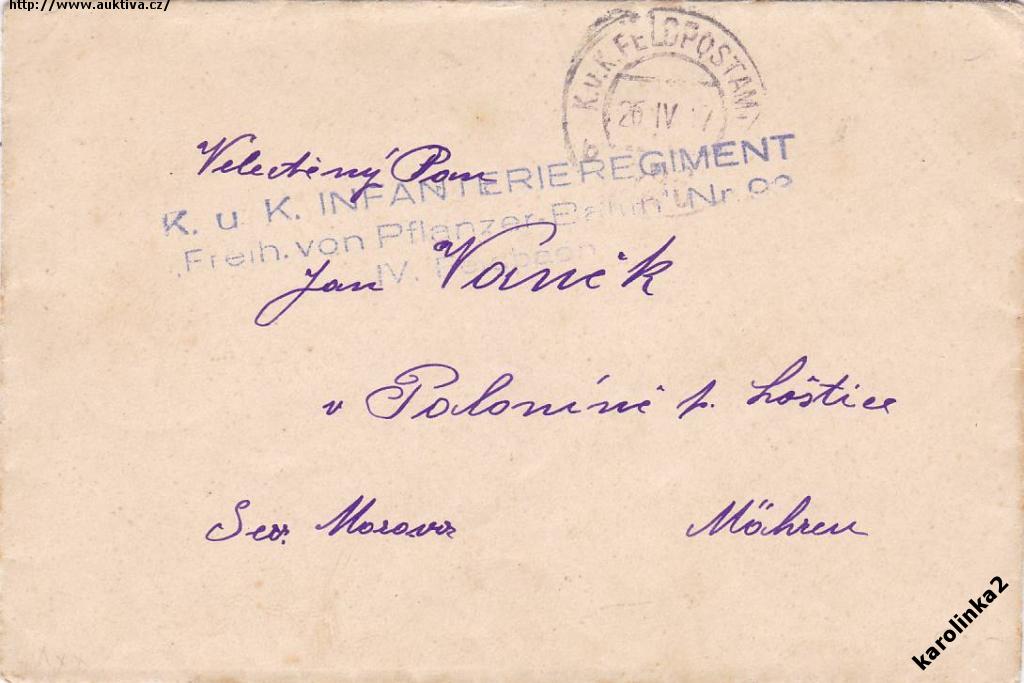 http://www.auktiva.cz/
K.u.K. FELDPOSTAM
26 IV 17
Velectěný Pan
K. u K. INFANTERIEREGIMENT
Freih. von Pflanzer-Baltin Nr.
IV.
Jan Vaněk
v Poloníně p. Loštice
Sev. Morava Mähren
karolinka2